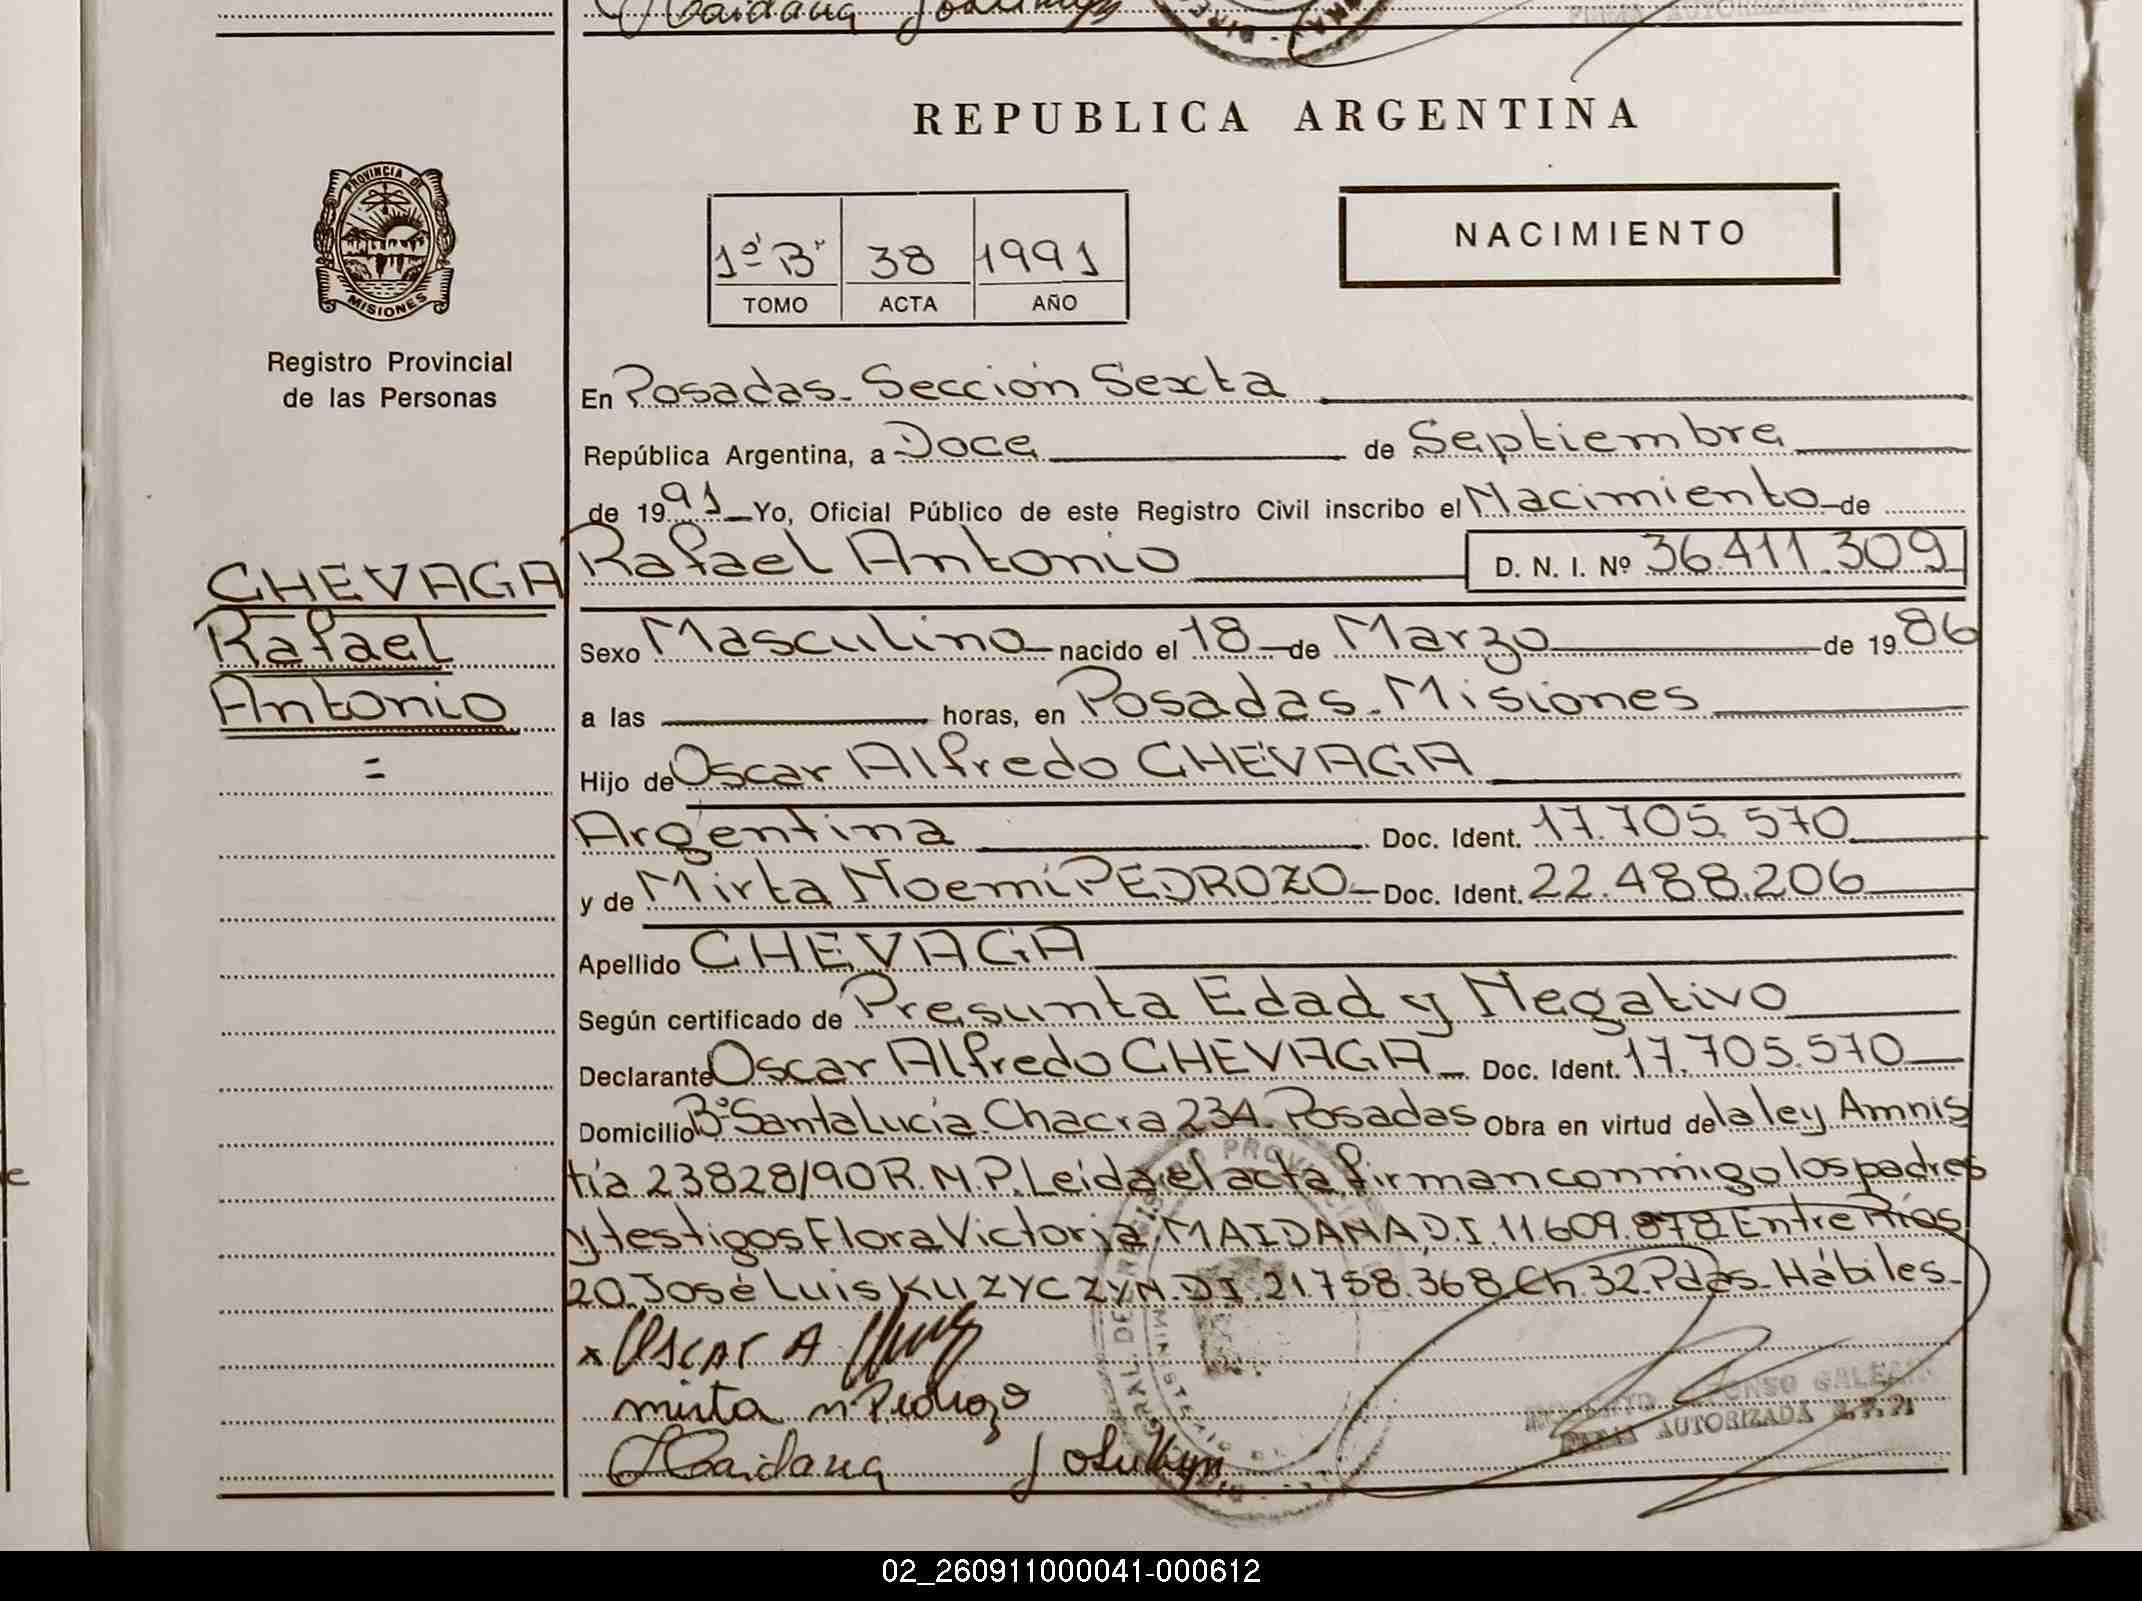 REPUBLICA ARGENTINA
PROVINCIA DE
MISIONES
Registro Provincial
de las Personas
NACIMIENTO
1º "B" 38 1991
TOMO ACTA AÑO
En Posadas. Sección Sexta
República Argentina, a Doce de Septiembre
de 1991 Yo, Oficial Público de este Registro Civil inscribo el Nacimiento de
CHEVAGA
Rafael
Antonio
Rafael Antonio D. N. I. Nº 36.411.309
Sexo Masculino nacido el 18 de Marzo de 1986
a las horas, en Posadas. Misiones
Hijo de Oscar Alfredo CHEVAGA
Argentina Doc. Ident. 17.705.570
y de Mirta Noemí PEDROZO Doc. Ident. 22.488.206
Apellido CHEVAGA
Según certificado de Presunta Edad y Negativo
Declarante Oscar Alfredo CHEVAGA Doc. Ident. 17.705.570
Domicilio Bº Santa Lucía Chacra 234. Posadas Obra en virtud de la ley Amnis
tía 23828/90 R.N.P. Leída el acta firman conmigo los padres
y testigos Flora Victoria MAIDANA D.I. 11.609.878 Entre Ríos
20. José Luis KUZYCZYN. D.I. 21.758.368 Ch. 32. Pdas. Hábiles.
x Oscar A
mirta n Pedrozo
AUTORIZADA
02_260911000041-000612